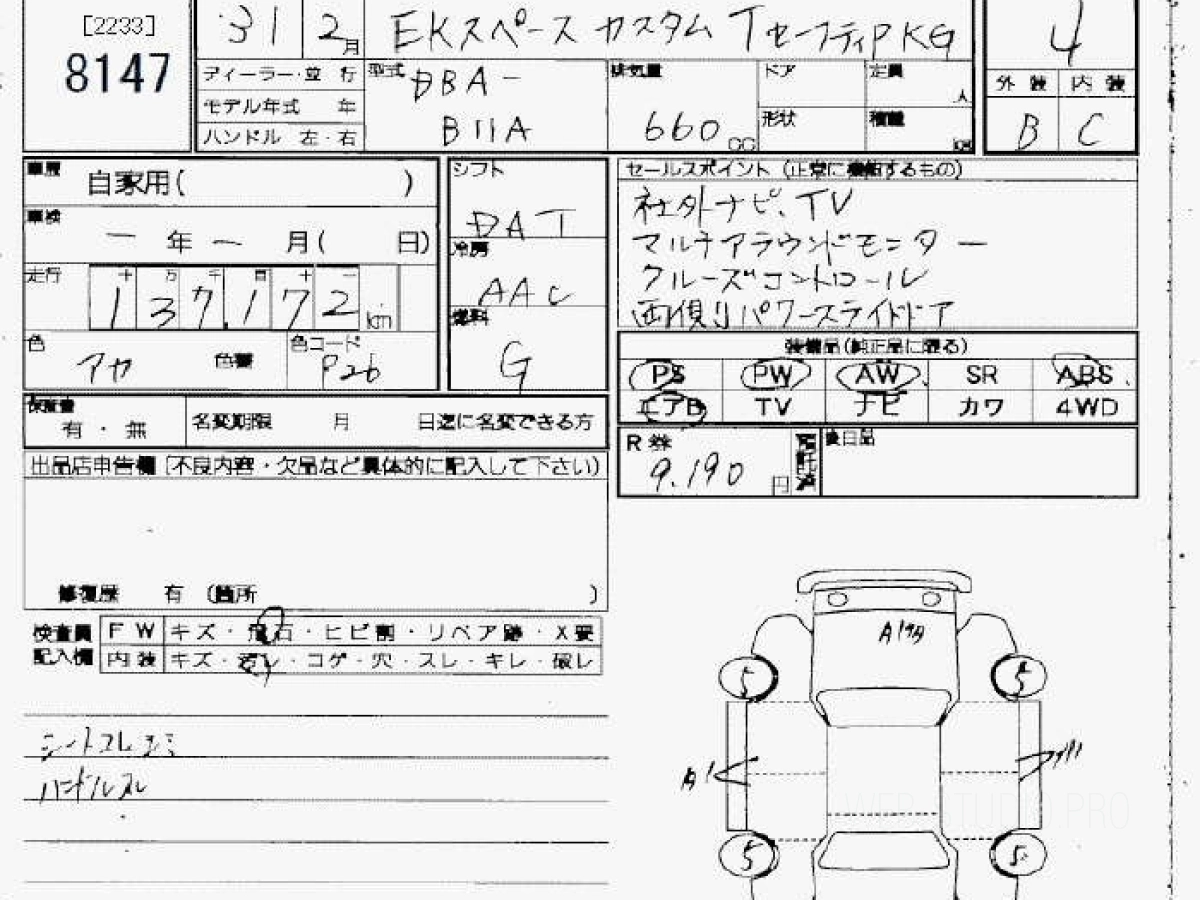 [2233]
8147
31 2月
EKスペース カスタム TセーフティPKG
4
ディーラー・並行
モデル年式 年
ハンドル 左・右
型式 DBA-
B11A
排気量
660 CC
ドア
定員 人
形状
積載 kg
外装 内装
B C
車歴 自家用( )
車検
ー 年 ー 月( 日)
走行 十 万 千 百 十 一
137,172 km
色 アカ 色替
色コード P26
シフト
DAT
冷房
AAC
燃料
G
セールスポイント (正常に機能するもの)
社外ナビ、TV
マルチアラウンドモニター
クルーズコントロール
両側パワースライドドア
装備品(純正品に限る)
PS PW AW SR ABS
エアB TV ナビ カワ 4WD
保証書
有・無
名変期限 月 日迄に名変できる方
R券
9,190 円
預託済
後日品
出品店申告欄 (不良内容・欠品など具体的に記入して下さい)
修復歴 有 (箇所 )
検査員 FW キズ・飛石・ヒビ割・リペア跡・X要
記入欄 内装 キズ・汚レ・コゲ・穴・スレ・キレ・破レ
ハンドルスレ
5 5
A1
5 5
WEB STUDIO PRO